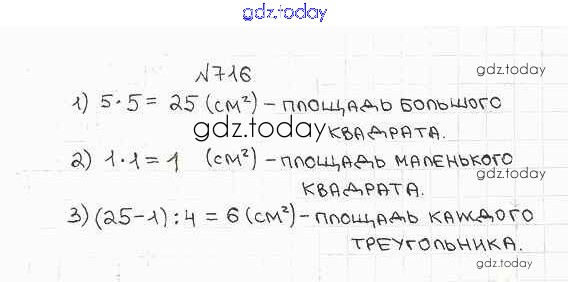 gdz.today
№716
gdz.today
1) 5·5= 25 (см²) – площадь большого
gdz.today
квадрата.
2) 1·1=1 (см²) – площадь маленького
gdz.today
квадрата.
3) (25-1):4 = 6 (см²) – площадь каждого
треугольника.
gdz.today